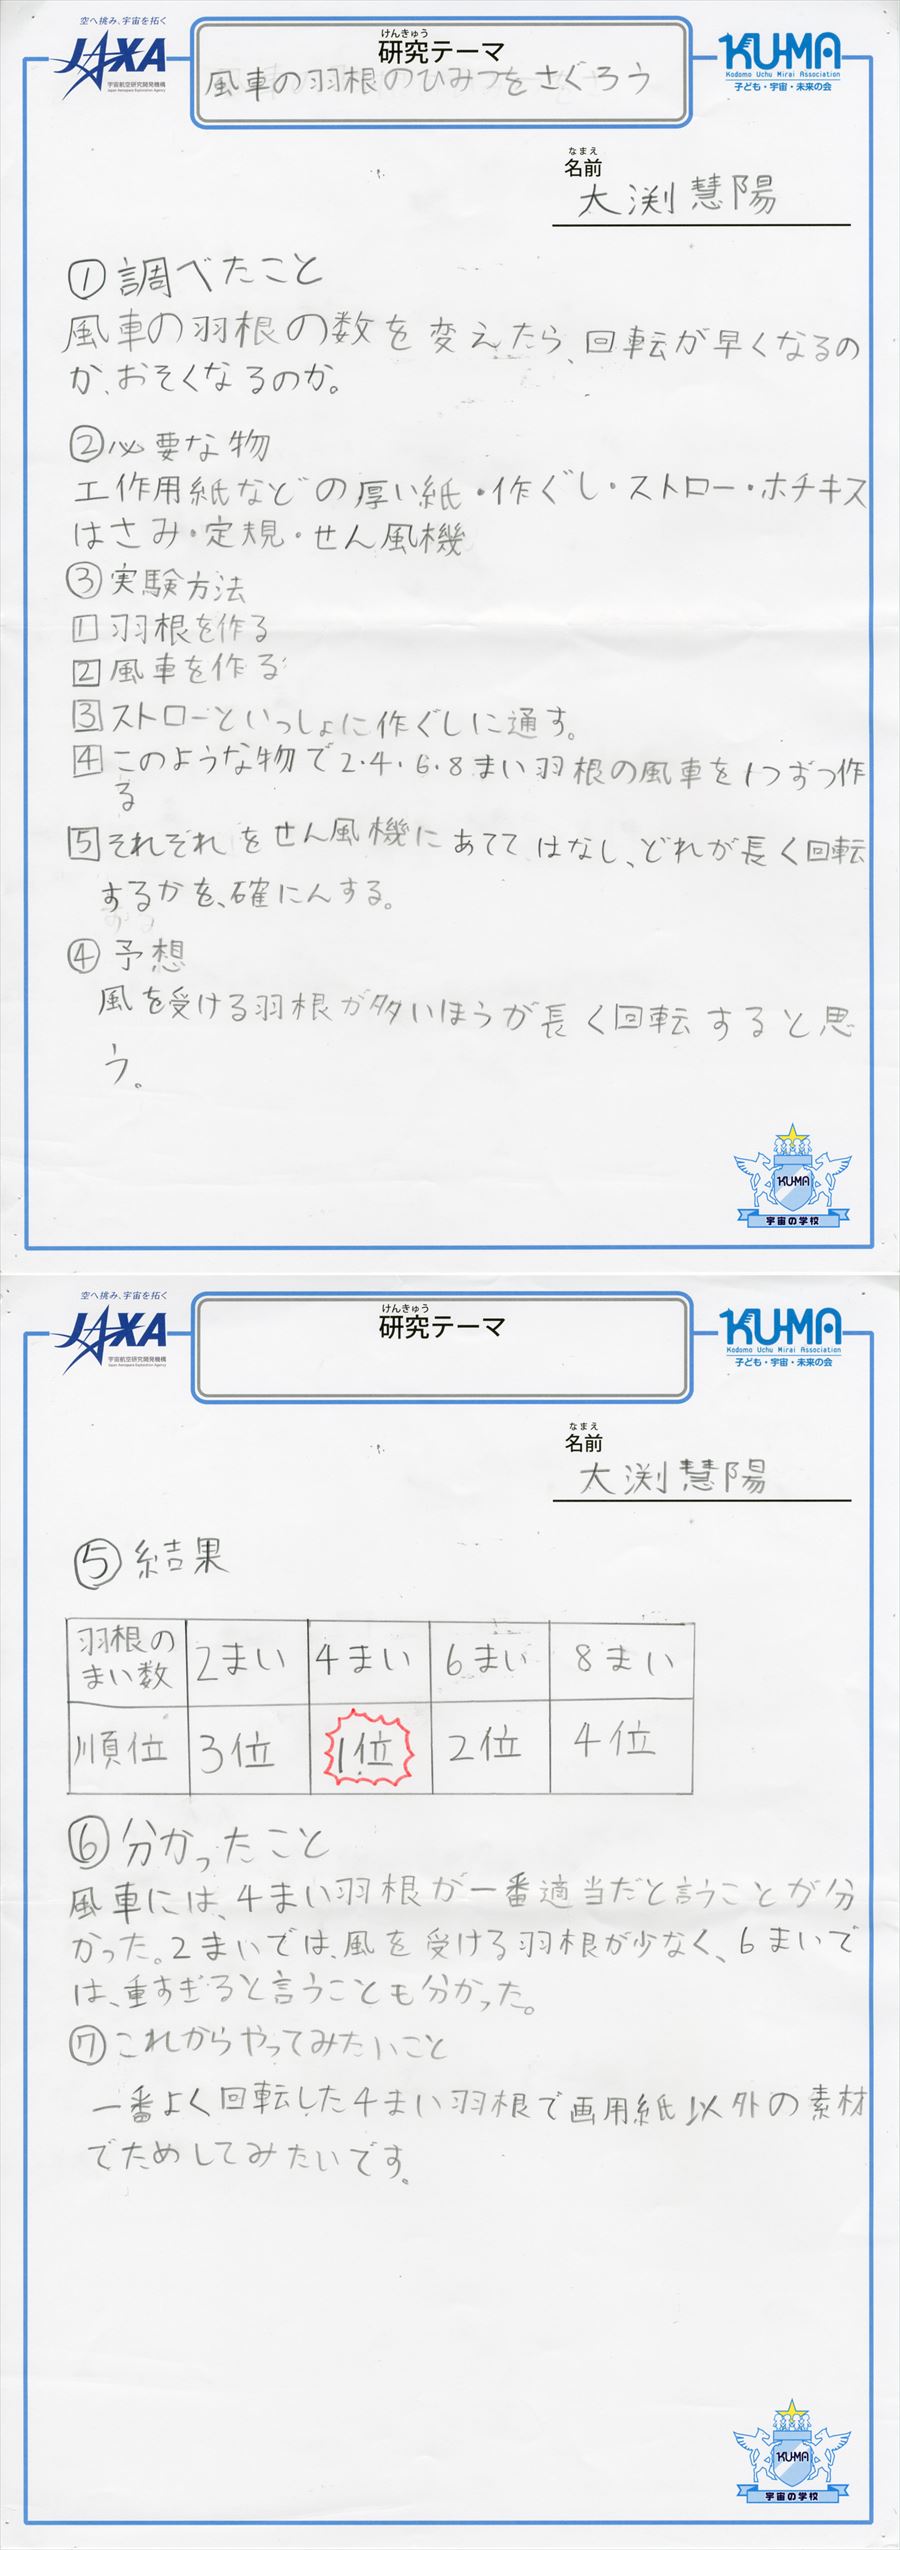 空へ挑み、宇宙を拓く
JAXA
宇宙航空研究開発機構
Japan Aerospace Exploration Agency
けんきゅう
研究テーマ
風車の羽根のひみつをさぐろう
KU-MA
Kodomo Uchu Mirai Association
子ども・宇宙・未来の会
なまえ
名前
大渕慧陽
①調べたこと
風車の羽根の数を変えたら、回転が早くなるの
か、おそくなるのか。
②必要な物
工作用紙などの厚い紙・作ぐし・ストロー・ホチキス
はさみ・定規・せん風機
③実験方法
1羽根を作る
2風車を作る
3ストローといっしょに作ぐしに通す。
4このような物で2・4・6・8まい羽根の風車を1つずつ作
る
5それぞれをせん風機にあててはなし、どれが長く回転
するかを、確にんする。
④予想
風を受ける羽根が多いほうが長く回転すると思
う。
KU-MA
宇宙の学校
空へ挑み、宇宙を拓く
JAXA
宇宙航空研究開発機構
Japan Aerospace Exploration Agency
けんきゅう
研究テーマ
KU-MA
Kodomo Uchu Mirai Association
子ども・宇宙・未来の会
なまえ
名前
大渕慧陽
⑤結果
羽根の
まい数 2まい 4まい 6まい 8まい
順位 3位 1位 2位 4位
⑥分かったこと
風車には、4まい羽根が一番適当だと言うことが分
かった。2まいでは、風を受ける羽根が少なく、6まいで
は、重すぎると言うことも分かった。
⑦これからやってみたいこと
一番よく回転した4まい羽根で画用紙以外の素材
でためしてみたいです。
KU-MA
宇宙の学校